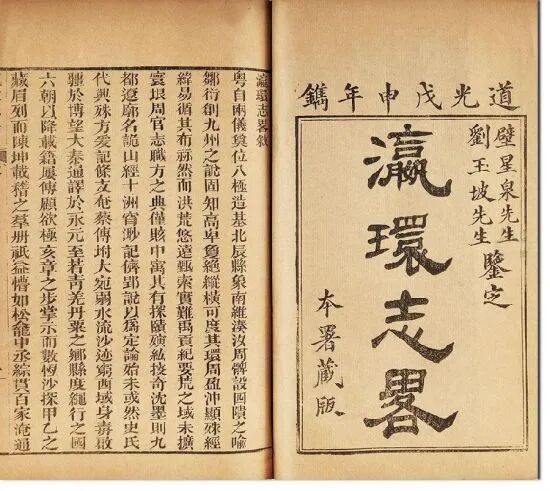 道光戊申年鐫
璧星泉先生
劉玉坡先生
鑒定
瀛環志畧
本署藏版
瀛環志畧敘
粵自兩儀奠位八極造基北辰縣象南維湊沒周髀設四隤之喻
鄒衍創九州之說固知高卑敻絕縱橫可度其環周盈沖顯殊經
緯易循其布然而洪荒悠遠索實難禹貢紀要荒之域未擴
寰垠周官志職方之典僅賅中寓其有探賾紘技奇沈墨則九
都遼廓名詭山經十洲窅渺記儕郢說以為定論殆未或然史氏
代興殊方爰記條支奄蔡傳坿大宛弱水流沙迹窮西域身毒啟
疆於博望大秦通譯於永元至若青羌丹粟之鄉縣度繩行之國
六朝以降載籍屢傳顧欲極亥章之步掌示而數恆沙探甲乙之
藏眉列而陳坤載稽之羣冊祇益懵如松龕中丞綜貫百家淹通